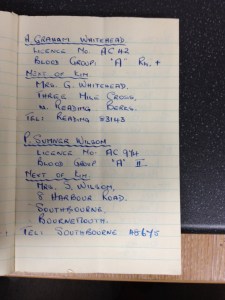 A. GRAHAM WHITEHEAD.
LICENCE No. AC 42
BLOOD GROUP. "A" RH. +
NEXT OF KIN
MRS. G. WHITEHEAD.
THREE MILE CROSS,
READING BERKS.
TEL: READING 83143
P. SUMNER WILSON.
LICENCE No. AC
BLOOD GROUP "A"
NEXT OF KIN.
MRS. S. WILSON,
8 HARBOUR ROAD.
SOUTHBOURNE,
BOURNEMOUTH.
TEL: SOUTHBOURNE